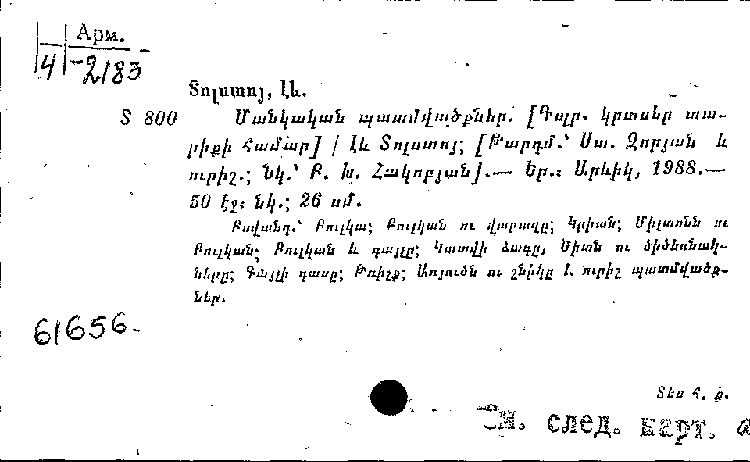 Арм.
4 -2183
Տոլստոյ, Լև.
Տ 800 Մանկական պատմվածքներ. [Դպր. կրտսեր տա-
րիքի համար] / Լև Տոլստոյ; [Թարգմ.՝ Ստ. Զորյան և
ուրիշ.; նկ.՝ Ր. Խ. Հակոբյան].— Եր.: Արևիկ, 1988.—
50 էջ: նկ.; 26 սմ.
Բովանդ.՝ Բուլկա; Բուլկան ու վարազը; Կրիան; Միլտոնն ու
Բուլկան; Բուլկան և գայլը; Կատվի ձագը, Միան ու ծիծեռնակ-
ները; Գայլի դասը; Թռիչք; Առյուծն ու շնիկը և ուրիշ պատմվածք-
ներ.
61656-
Տես հ. ք.
См. след. карт.